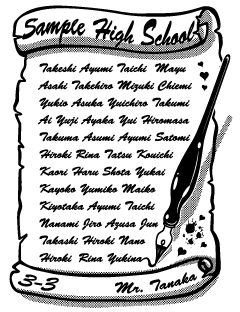 Sample High School
Takeshi Ayumi Taichi Mayu
Asahi Takehiro Mizuki Chiemi
Yukio Asuka Yuichiro Takumi
Ai Yuji Ayaka Yui Hiromasa
Takuma Asumi Ayumi Satomi
Hiroki Rina Tatsu Kouichi
Kaori Haru Shota Yukai
Kayoko Yumiko Maiko
Kiyotaka Ayumi Taichi
Nanami Jiro Azusa Jun
Takashi Hiroki Nano
Hiroki Rina Yukina
3-3 Mr. Tanaka